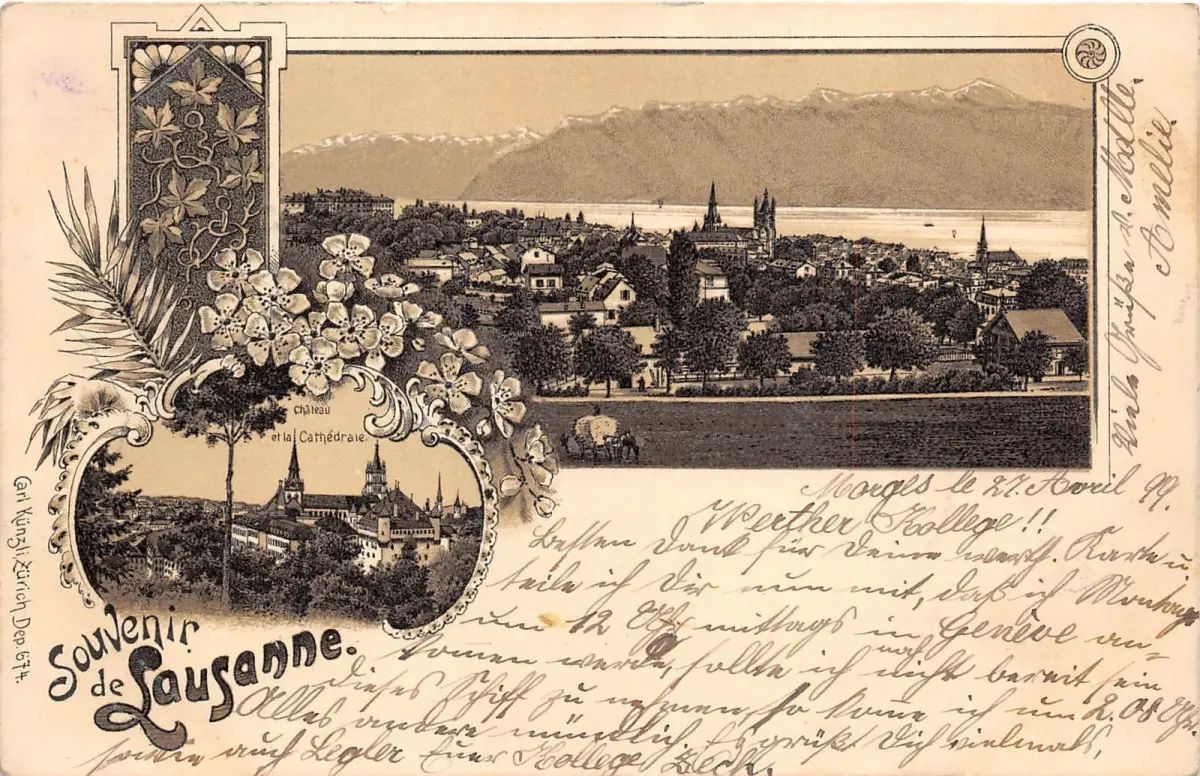 Château
et la Cathédrale.
Souvenir
de Lausanne.
Carl Künzli, Zürich Dep. 674.
Morges le 27. Avril 99.
Werther Kollege!!
Besten Dank für Deine werth. Karte u.
teile ich Dir nun mit, daß ich Montags
um 12 Uhr mittags in Genève an-
komen werde, sollte ich noch nicht bereit sein
dieses Schiff zu nehmen, so kome ich um 2.08 Uhr.
Alles andere mündlich. Es grüßt Dich vielmals,
sowie auch Legler Euer Kollege Beck.
Viele Grüße v. Madlle.
Amelie.